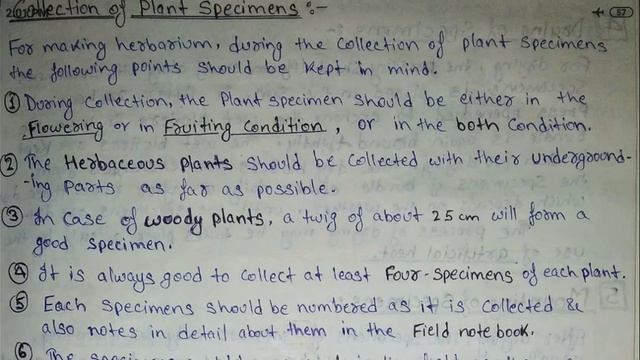 Collection of Plant Specimens :-
57
For making herbarium, during the collection of plant specimens
the following points should be kept in mind.
① During collection, the Plant specimen should be either in the
Flowering or in Fruiting Condition, or in the both Condition.
② The Herbaceous plants should be collected with their underground-
-ing parts as far as possible.
③ In case of woody plants, a twig of about 25 cm will form a
good specimen.
④ It is always good to collect at least Four-specimens of each plant.
⑤ Each specimens should be numbered as it is collected &
also notes in detail about them in the Field note book.
⑥ The